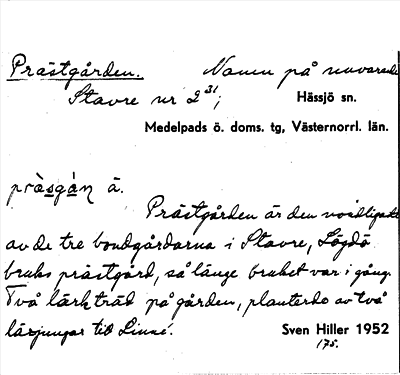 Prästgården. Namn på nuvarande
Stavre nr 2 31; Hässjö sn.
Medelpads ö. doms. tg, Västernorrl. län.
pràsgán ä.
Prästgården är den nordligaste
av de tre bondgårdarna i Stavre, Lögdö
bruks prästgård, så länge bruket var i gång.
Två lärkträd på gården, planterde av två
lärjungar till Linné.
Sven Hiller 1952
175.